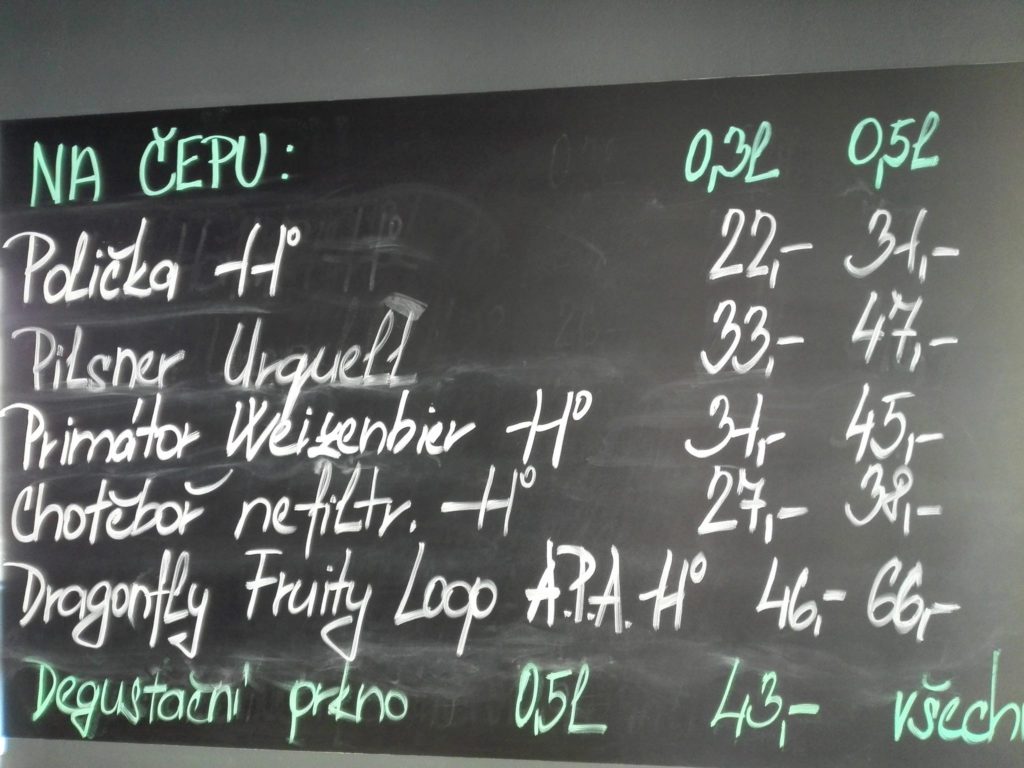 NA ČEPU: 0,3L 0,5L
Polička 11° 22,- 31,-
Pilsner Urquell 33,- 47,-
Primátor Weizenbier 11° 31,- 45,-
Chotěboř nefiltr. 11° 27,- 38,-
Dragonfly Fruity Loop A.P.A. 11° 46,- 66,-
Degustační prkno 0,5L 43,- všech